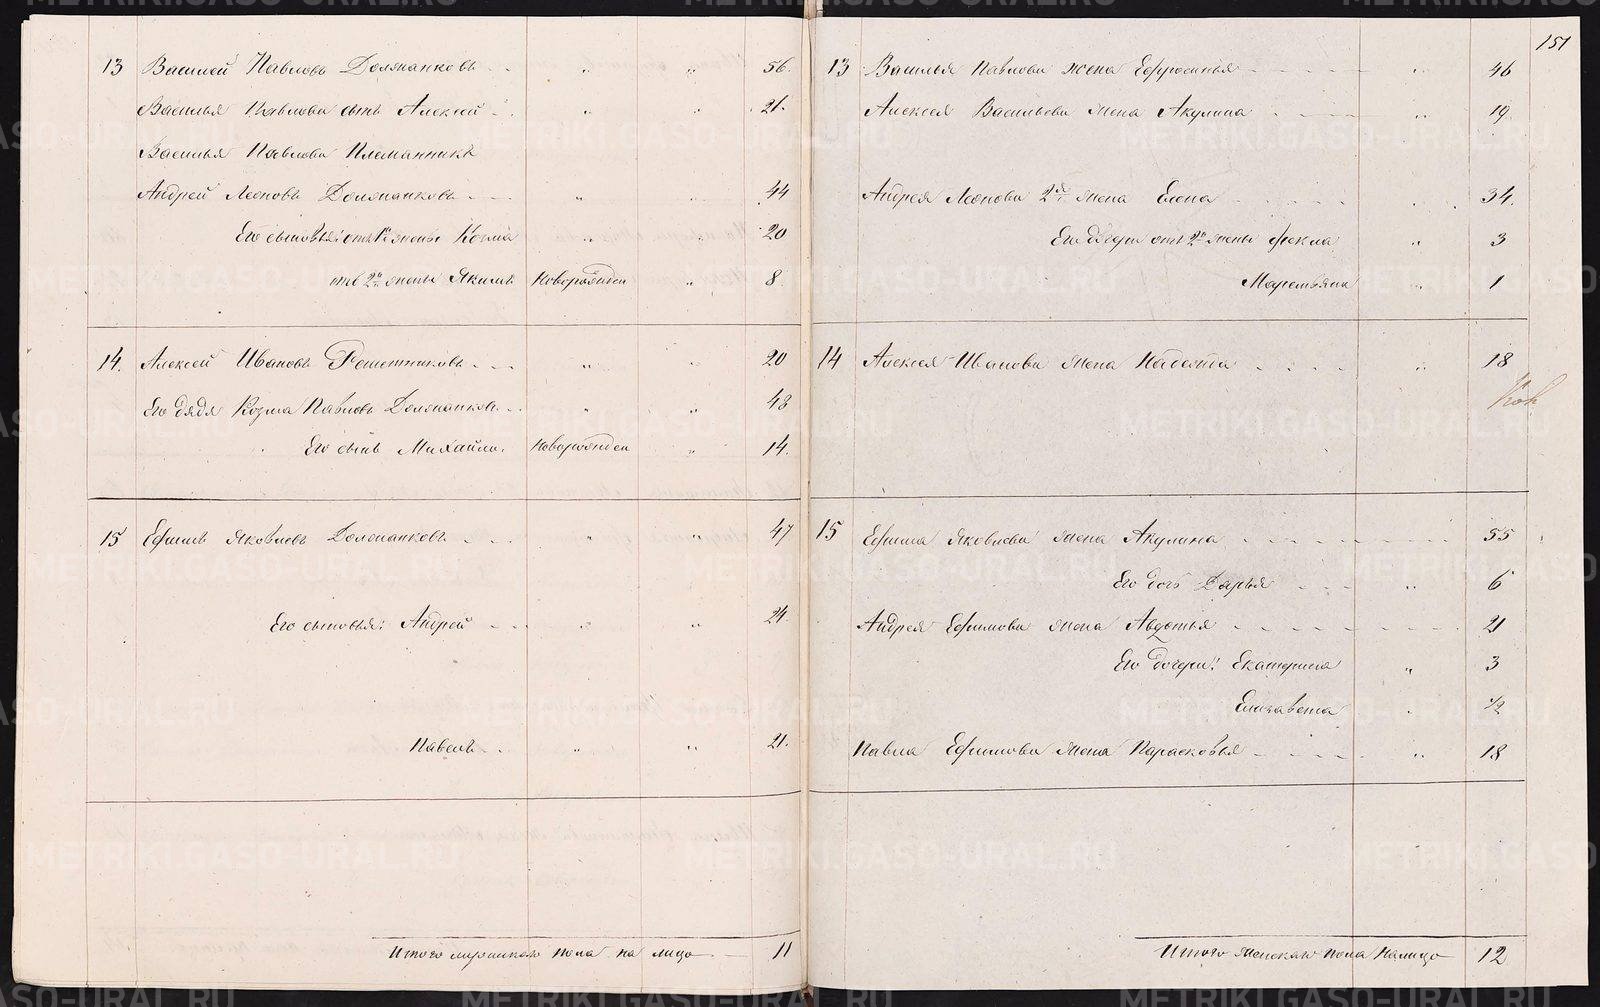 151
13 Василей Павловъ Долганковъ 56.
Василья Павлова сынъ Алексей 21.
Василья Павлова Племянникъ
Андрей Леоновъ Долганковъ 44
Его сыновья: отъ 1й жены Козма 20
отъ 2й жены Якимъ Новорожден 8
14. Алексей Ивановъ Решетниковъ 20
Его дядя Козма Павловъ Долганковъ 48
Его сынъ Михайло. Новорожден 14.
15 Ефимъ Яковлевъ Долганковъ 47
Его сыновья: Андрей 24.
Павелъ 21.
Итого мужескаго пола на лицо 11
13 Василья Павлова жена Ефросинья 46
Алексея Васильева жена Акулина 19
Андрея Леонова 2я жена Елена 34.
Его дочери отъ 2й жены Фекла 3
Маремьяна 1
14 Алексея Иванова жена Надежда 18
15 Ефима Яковлева жена Акулина 55
Его дочь Дарья 6
Андрея Ефимова жена Авдотья 21
Его дочери: Екатерина 3
Елизавета 1/2
Павла Ефимова жена Парасковья 18
Итого женскаго пола налицо 12
METRIKI.GASO-URAL.RU